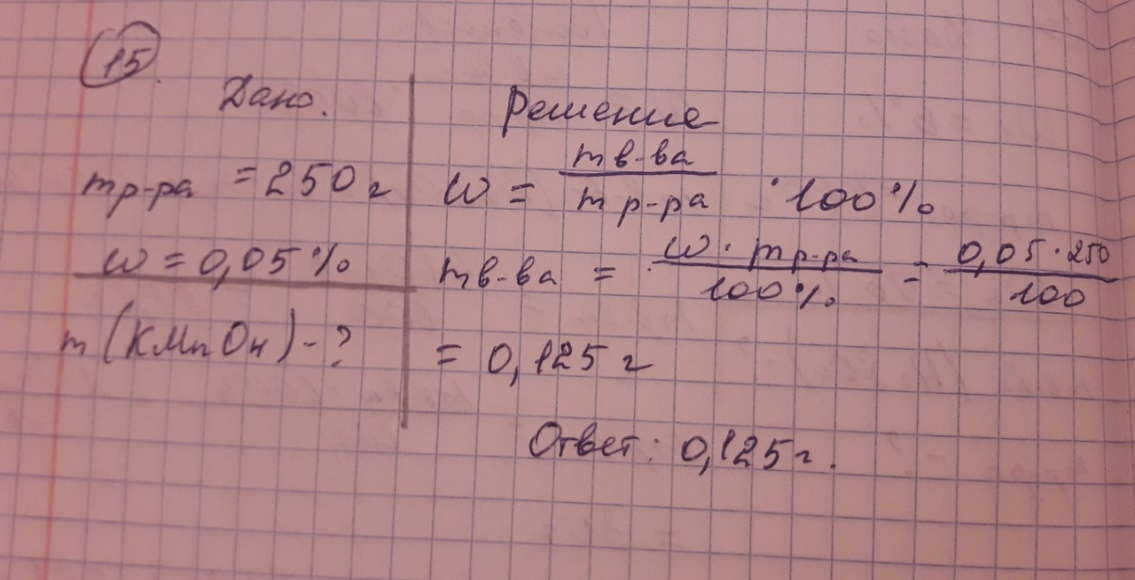 15.
Дано.
mр-ра = 250 г
ω = 0,05 %
m (KMnO4) - ?
Решение
ω = mв-ва / mр-ра · 100 %
mв-ва = ω · mр-ра / 100 % = 0,05 · 250 / 100
= 0,125 г
Ответ: 0,125 г.